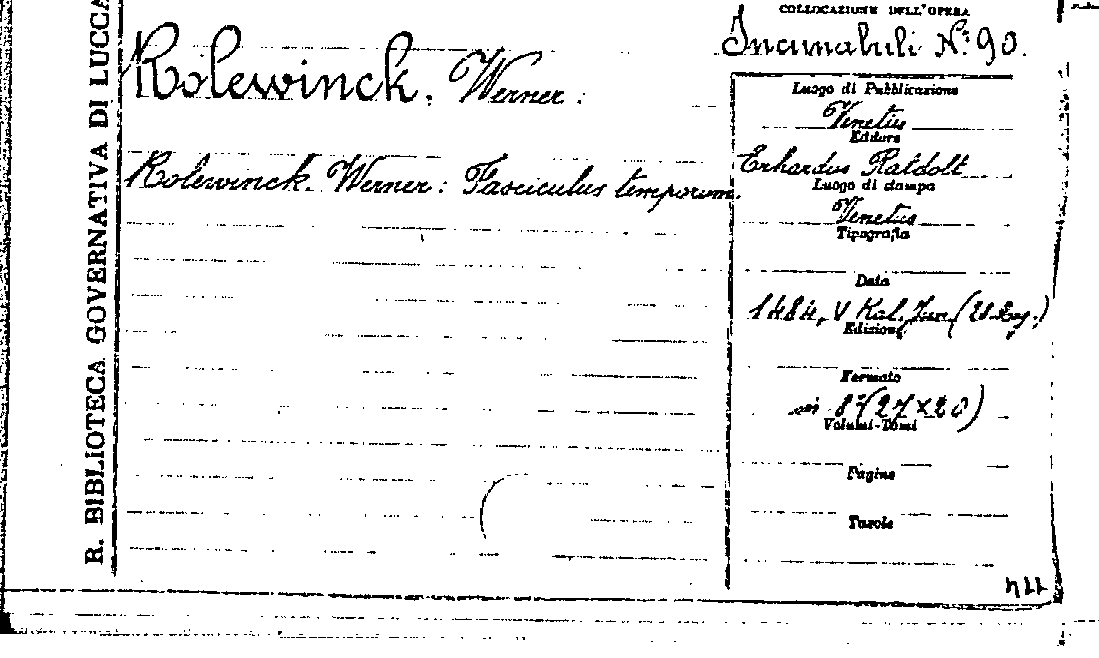 R. BIBLIOTECA GOVERNATIVA DI LUCCA
Rolewinck. Werner:
Rolewinck. Werner: Fasciculus temporum.
COLLOCAZIONE DELL'OPERA
Incunabuli N.º 90.
Luogo di Pubblicazione
Venetiis
Editore
Erhardus Ratdolt
Luogo di stampa
Venetiis
Tipografia
Data
1484, V Kal. Jun
Edizione
Formato
in 8º (27×20)
Volumi-Tomi
Pagine
Tavole